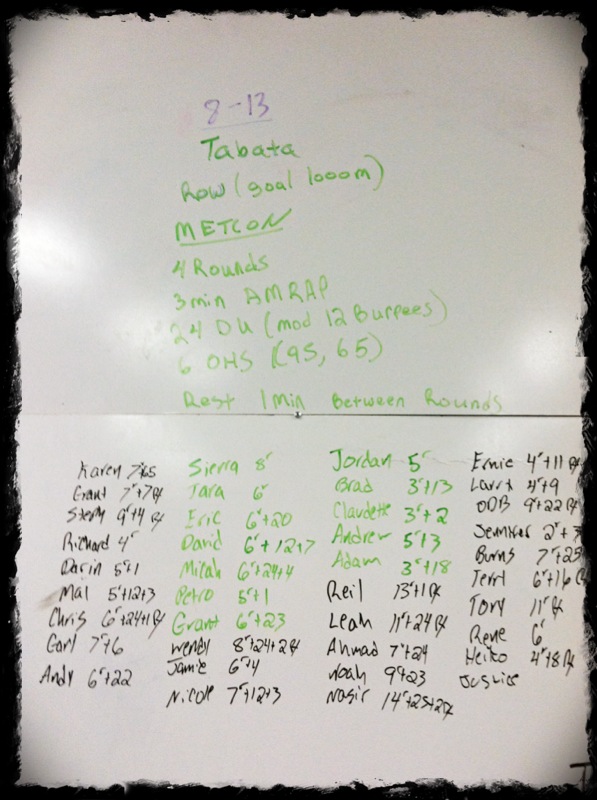 8-13
Tabata
Row (goal 1000m)
METCON
4 Rounds
3min AMRAP
24 DU (mod 12 Burpees)
6 OHS (95, 65)
Rest 1min Between Rounds
Karen
Grant 7r+7Rx
Steph 9r+4 Rx
Richard 4r
Darin 5r+1
Mal 5r+12+3
Chris 6r+24+1Rx
Carl 7r+6
Andy 6r+22
Sierra 8r
Tara 6r
Eric 6r+20
David 6r+12+7
Micah 6r+24+4
Petro 5r+1
Grant 6r+23
Wendy 8r+24+2Rx
Jamie 6r+4
Nicole 7r+12+3
Jordan 5r
Brad 3r+13
Claudette 3r+2
Andrew 5r+3
Adam 3r+18
Reil 13r+1Rx
Leah 11r+24Rx
Ahmad 7r+24
Noah 9r+23
Nasir 14r+25+2Rx
Ernie 4r+11 Rx
Larry 4r+9
ODB 9r+22Rx
Jennifer 2r+3
Burns 7r+25
Terri 6r+16 Rx
Tory 11r Rx
Rene 6r
Heiko 4r+8Rx
Justice